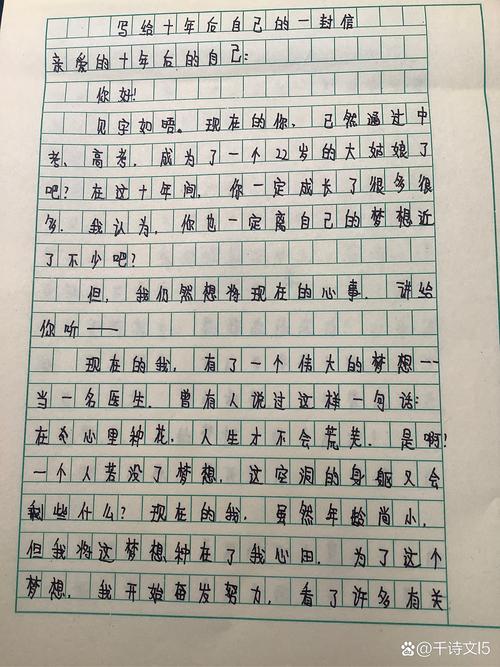 写给十年后自己的一封信
亲爱的十年后的自己:
你好!
见字如晤。现在的你,已然通过中
考、高考,成为了一个22岁的大姑娘了
吧?在这十年间,你一定成长了很多很
多。我认为,你也一定离自己的梦想近
了不少吧?
但,我仍然想将现在的心事,讲给
你听——
现在的我,有了一个伟大的梦想——
当一名医生。曾有人说过这样一句话:
在心里种花,人生才不会荒芜。是啊!
一个人若没了梦想,这空洞的身躯又会
剩些什么?现在的我,虽然年龄尚小,
但我将这梦想种在了我心田。为了这个
梦想,我开始奋发努力,看了许多有关
千诗文l5